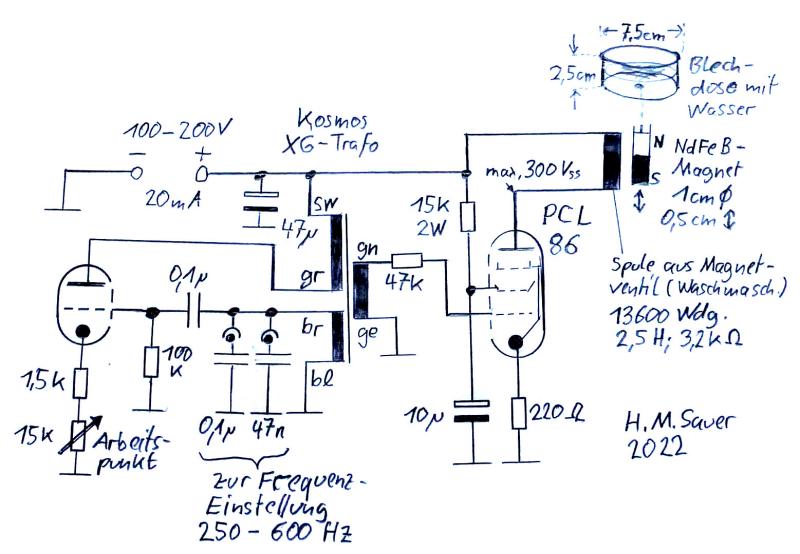 7,5cm
2,5cm
Blech-
dose mit
Wasser
100-200V
- +
20mA
Kosmos
XG-Trafo
max, 300 Vss
N
S
NdFeB-
Magnet
1cm Ø
0,5cm ↕
47µ
sw
15K
2W
PCL
86
gn
47K
gr
0,1µ
br
ge
bl
100
K
1,5K
15K
Arbeits-
punkt
0,1µ
47n
10µ
220Ω
Spule aus Magnet-
ventil (Waschmasch.)
13600 Wdg.
2,5H; 3,2kΩ
zur Frequenz-
Einstellung
250-600 Hz
H.M.Sauer
2022